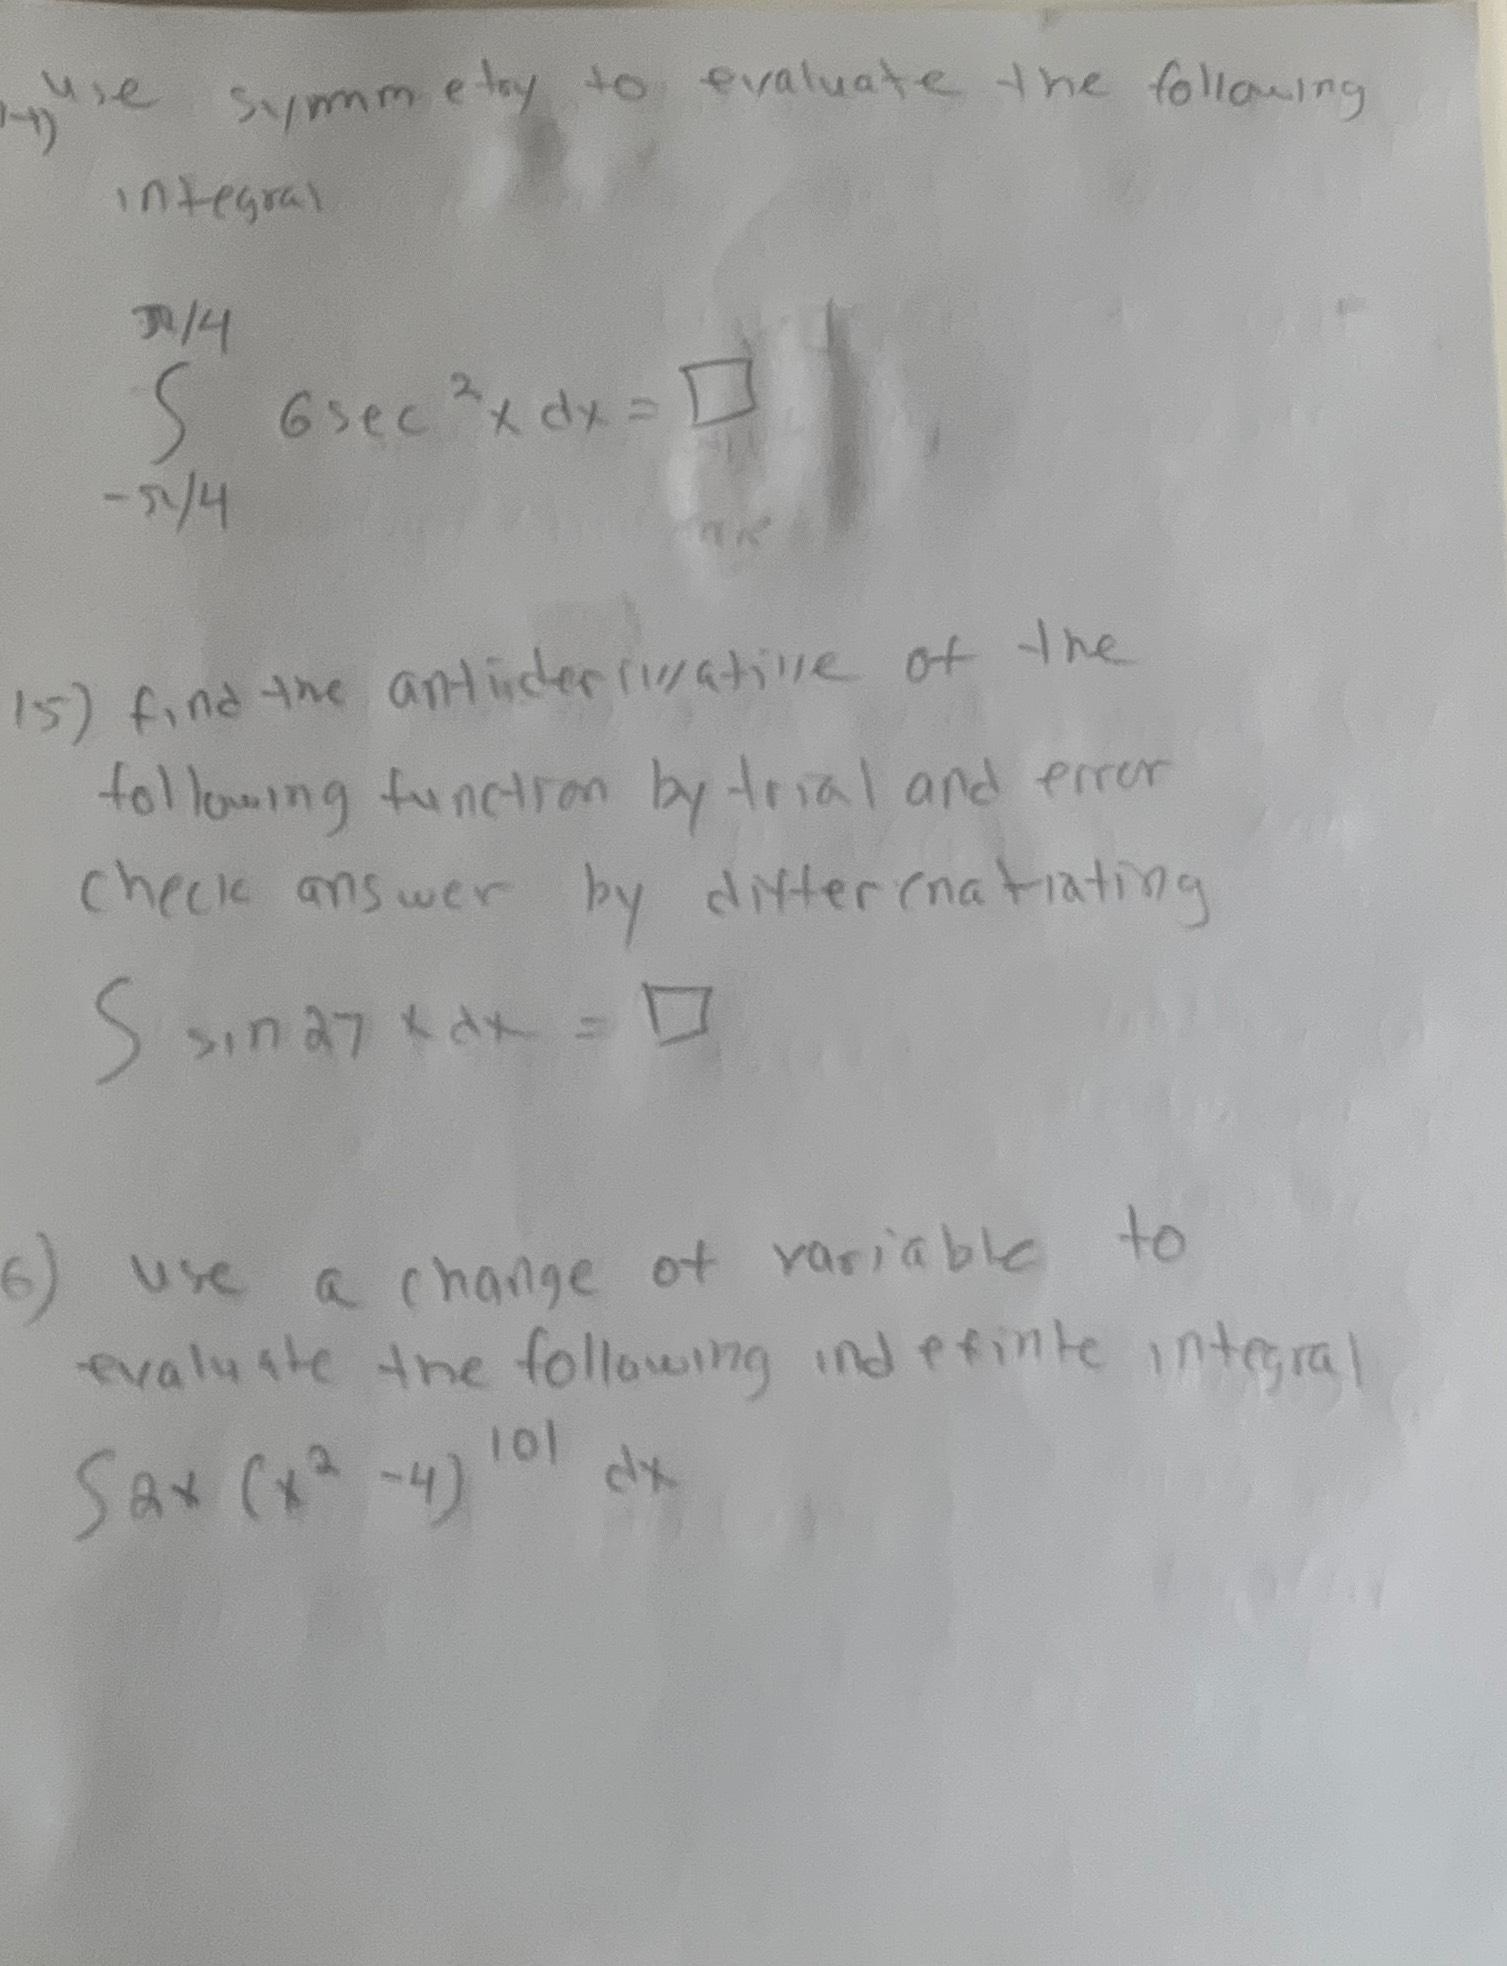 14) use symmetry to evaluate the following
integral
π/4
∫ 6sec²x dx = □
-π/4
15) find the antiiderivative of the
following function by trial and error
check answer by differenatiating
∫ sin 27 x dx = □
6) use a change of variable to
evaluate the following indefinte integral
∫2x (x² -4)¹⁰¹ dx